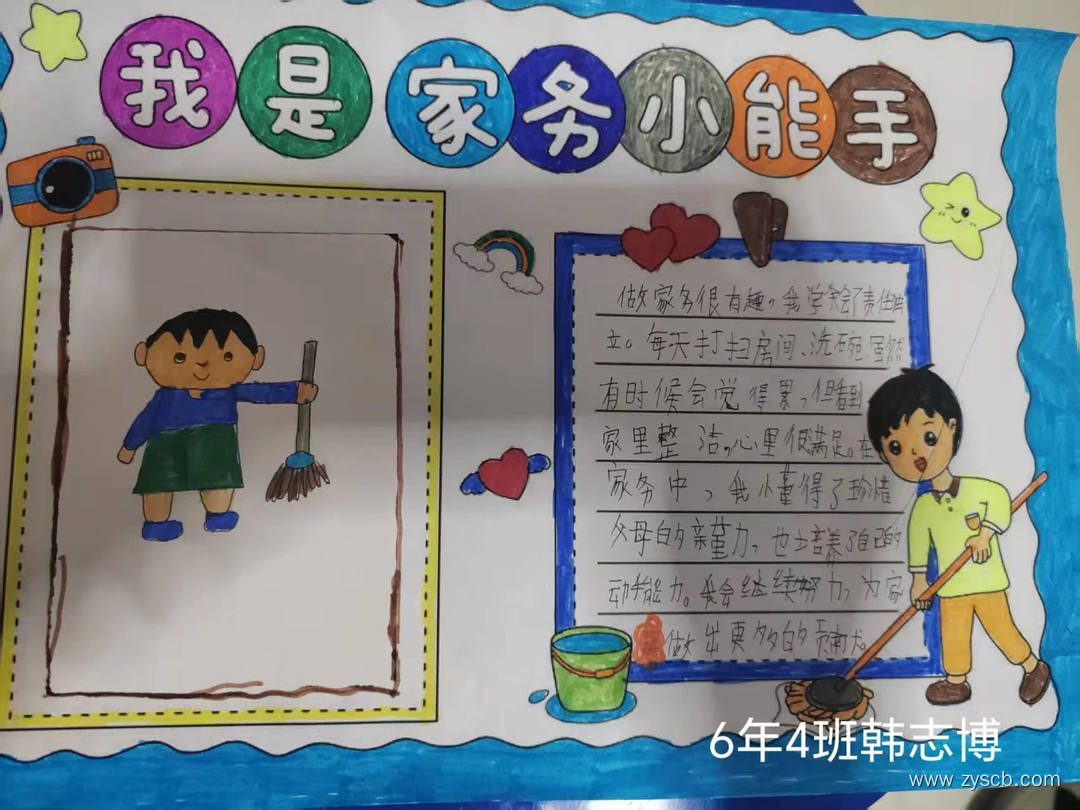 我是家务小能手
做家务很有趣，我学会了责任和
立。每天打扫房间、洗碗，虽然
有时候会觉得累，但看到
家里整洁，心里很满足。在
家务中，我懂得了珍惜
父母的辛董力，也培养了自己的
动手能力。我会继续努力，为家
做出更多的贡献。
6年4班韩志博
www.zyscb.com